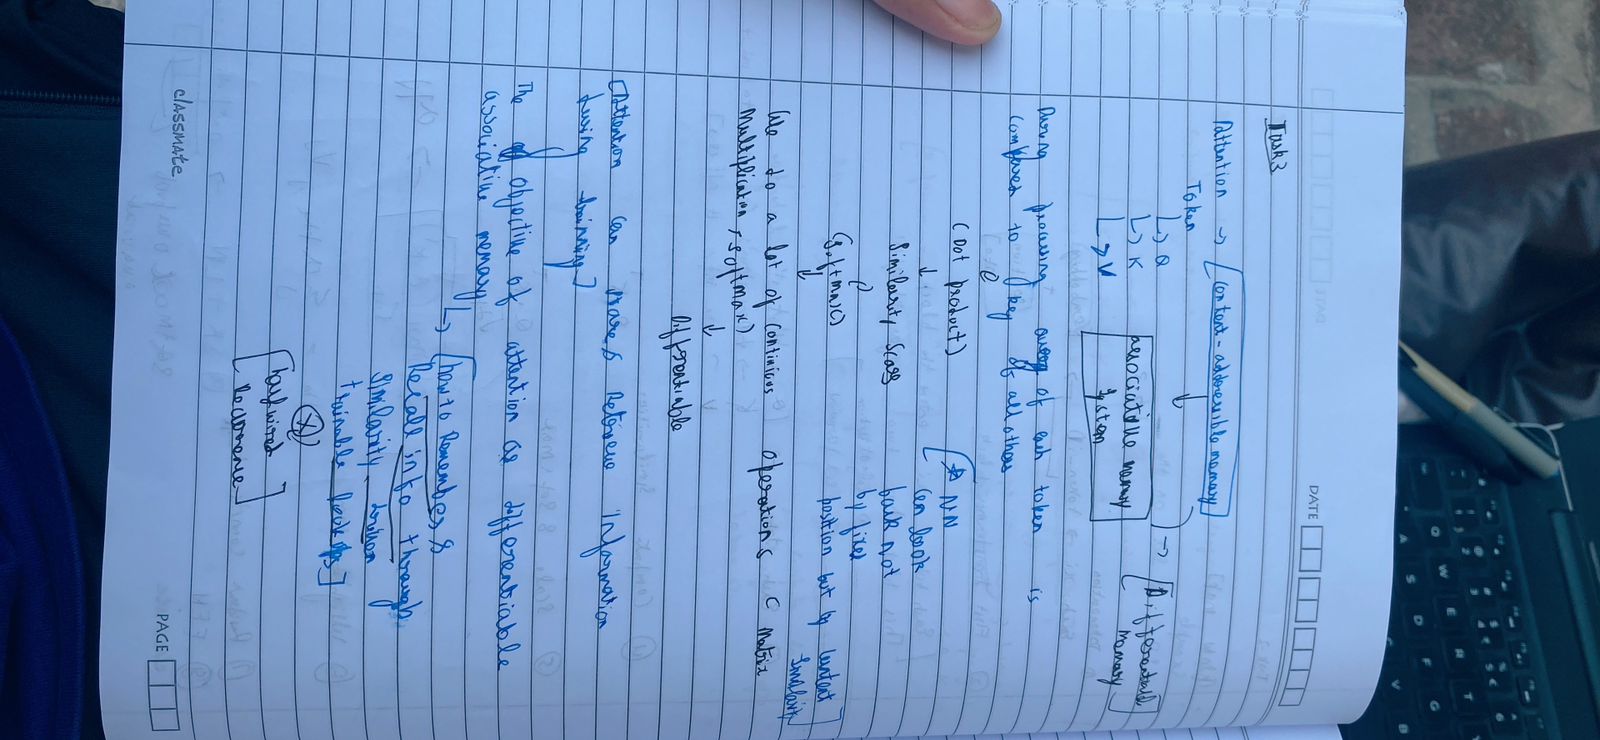 DATE
Task 3
Attention → [content-addressible memory]
Token
↳ Q
↳ K
↳ V
associative memory
system
→ [Differentiable
memory]
During processing query of each token is
compares to key of all others
(Dot product)
↓
Similarity Scores
↓
(softmax)
[NN
can look
back not
by fixed
position but by content
similarity]
We do a lot of continious operations (Matrix
Multiplication + softmax)
↓
Differentiable
[Attention can
Retrieve information
during training]
The objective of attention as differentiable
associative memory
↳ [how to Remember &
Recall info through
similarity driven
trainable look ups]
[hardwired
Recurrence]
classmate
PAGE